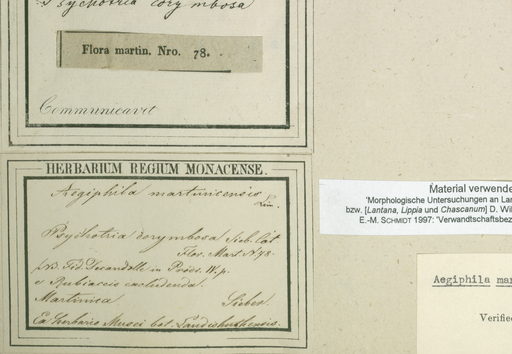 Psychotria corymbosa
Flora martin. Nro. 78.
Communicavit
HERBARIUM REGIUM MONACENSE.
Aegiphila martinicensis
Psychotria corymbosa Sieb. Cat.
Flor. Mart. N. 78.
fid. Decandolle in Prodr. IV. p.
e Rubiaceis excludenda.
Martinica Sieber.
Ex herbario Musei bot. Landishuthensis.
Material verwende
'Morphologische Untersuchungen an Lan
bzw. [Lantana, Lippia und Chascanum] D. Wil
E.-M. SCHMIDT 1997: 'Verwandtschaftsbez
Aegiphila mar
Verifie